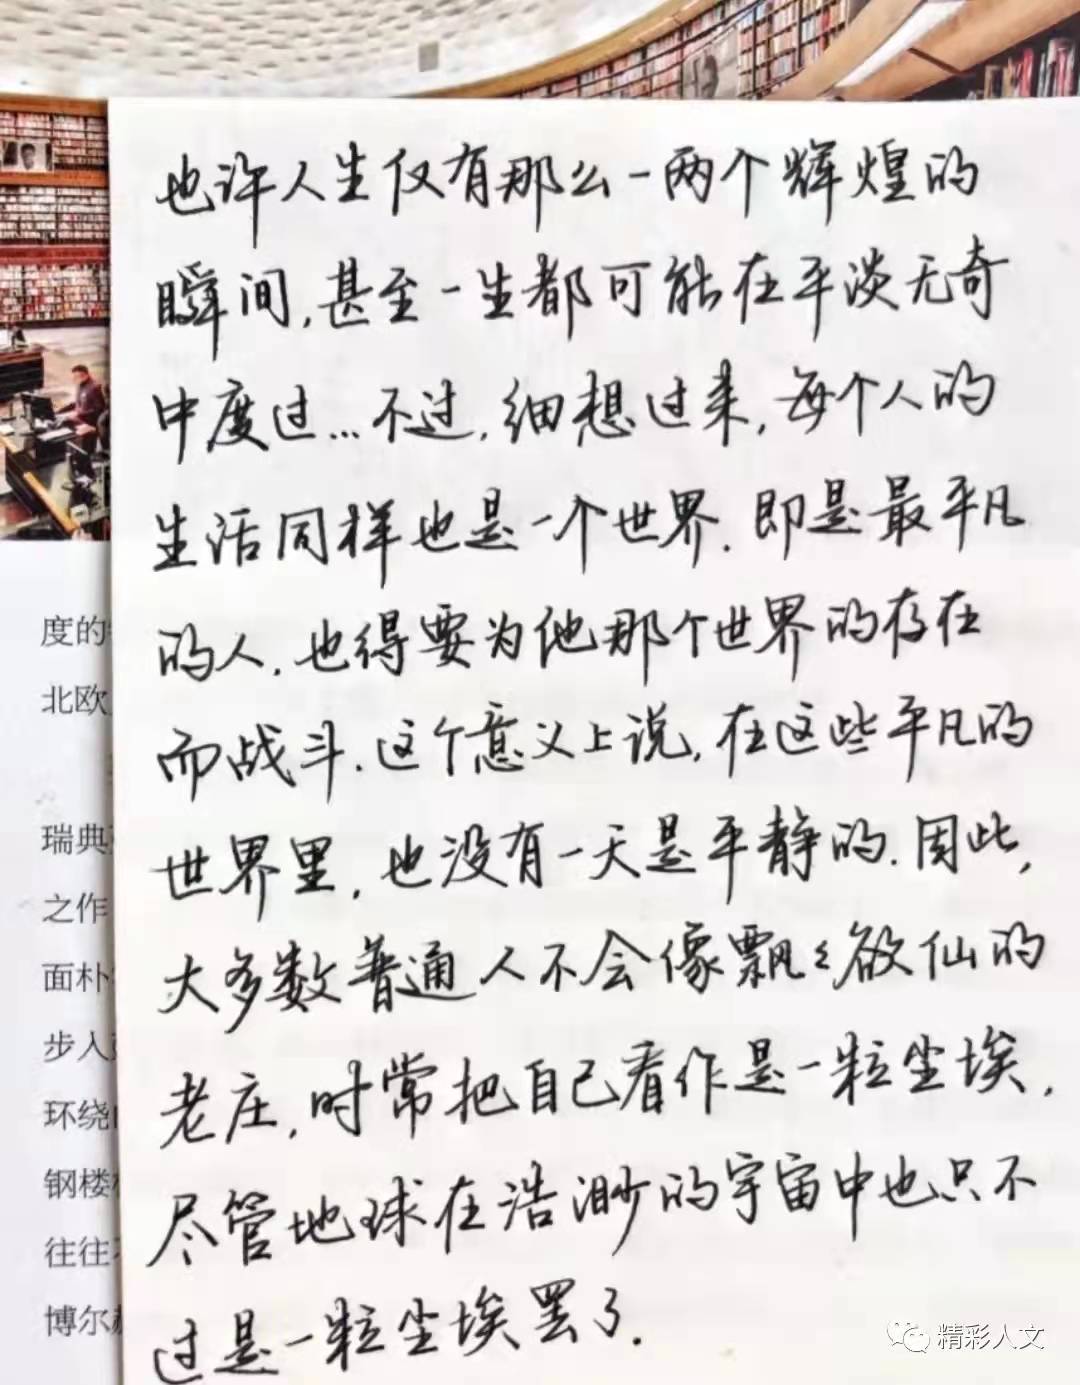 也许人生仅有那么一两个辉煌的
瞬间,甚至一生都可能在平淡无奇
中度过...不过,细想过来,每个人的
生活同样也是一个世界.即是最平凡
的人.也得要为他那个世界的存在
而战斗.这个意义上说,在这些平凡的
世界里,也没有一天是平静的.因此,
大多数普通人不会像飘々欲仙的
老庄,时常把自己看作是一粒尘埃,
尽管地球在浩渺的宇宙中也只不
过是一粒尘埃罢了.
度的
北欧
瑞典
之作
面朴
步入
环绕
钢楼
往往
博尔
精彩人文